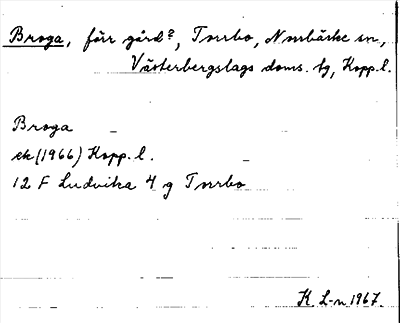 Broga, förr gård?, Torrbo, Norrbärke sn,
Västerbergslags doms. tg, Kopp. l.
Broga
ek (1966) Kopp. l.
12 F Ludvika 4 g Torrbo
K. L-n 1967.